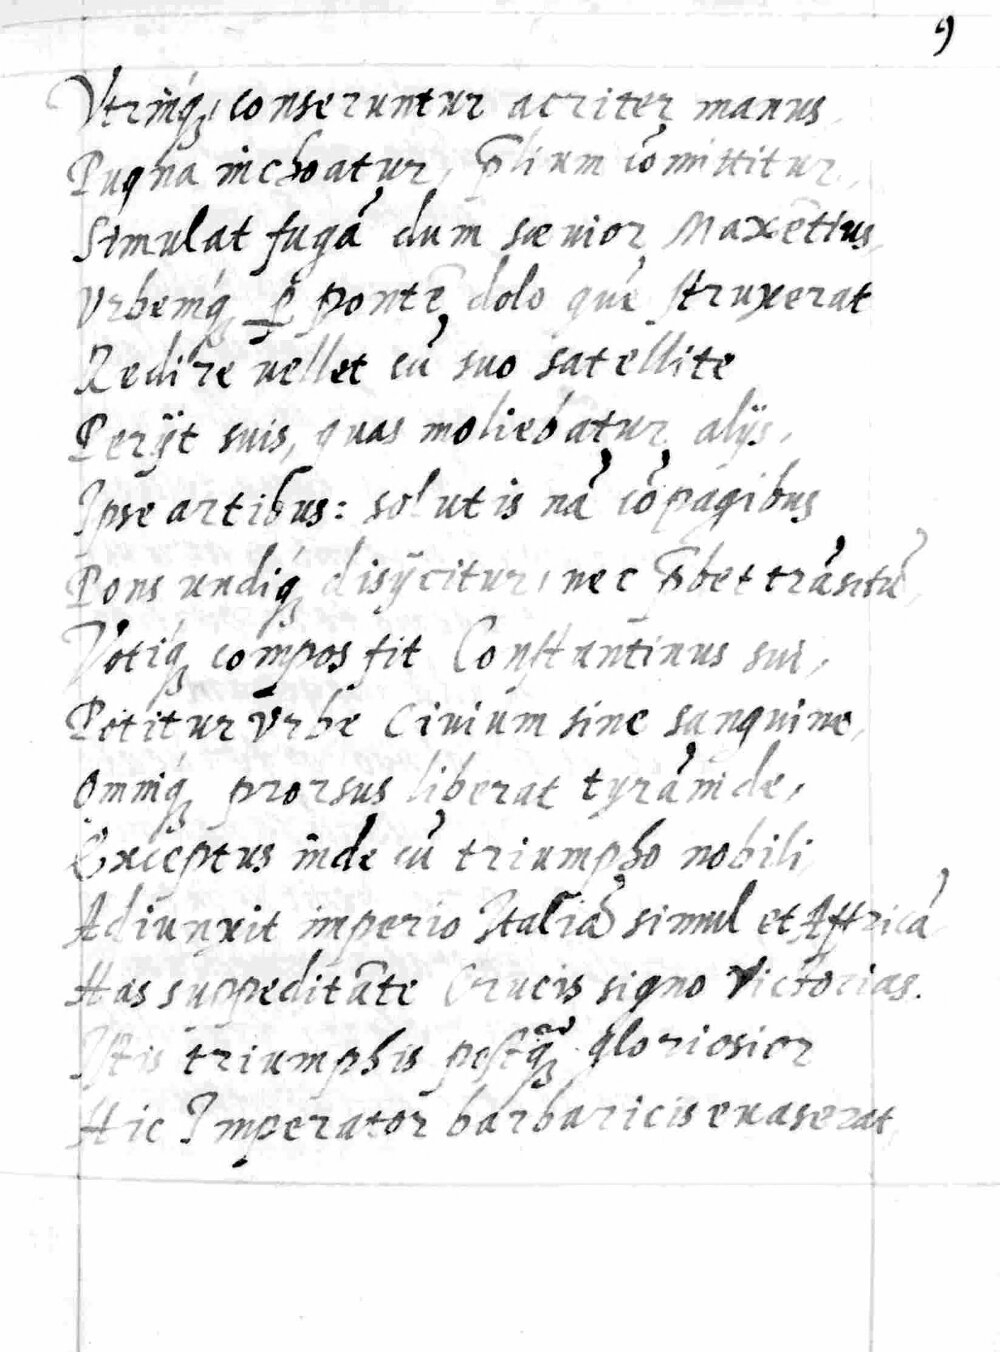 9
Vtrinq́ꝫ conseruntur acriter manus
Pugna inchoatur, p̄lium cōmittitur,
Simulat fugā dum sæuior Maxētius,
Vrbemq́ꝫ ꝑ pontē dolo quē struxerat
Redire vellet cū suo satellite
Perÿt suis, quas moliebatur alÿs,
Ipse artibus: solutis nā cōpagibus
Pons undiq́ꝫ disÿcitur, nec p̄bet trāsitū,
Votiq́ꝫ compos fit Constantinus sui,
Potitur vrbe Ciuium sine sanguine,
Omniq́ꝫ prorsus liberat tyrānide,
Exceptus inde cū triumpho nobili,
Adiunxit imperio Italiā simul et Affricā
Has suppeditāte Crucis signo Victorias.
Istis triumphis postq̃ꝫ gloriosior
Hic Imperator barbaricis euaserat,